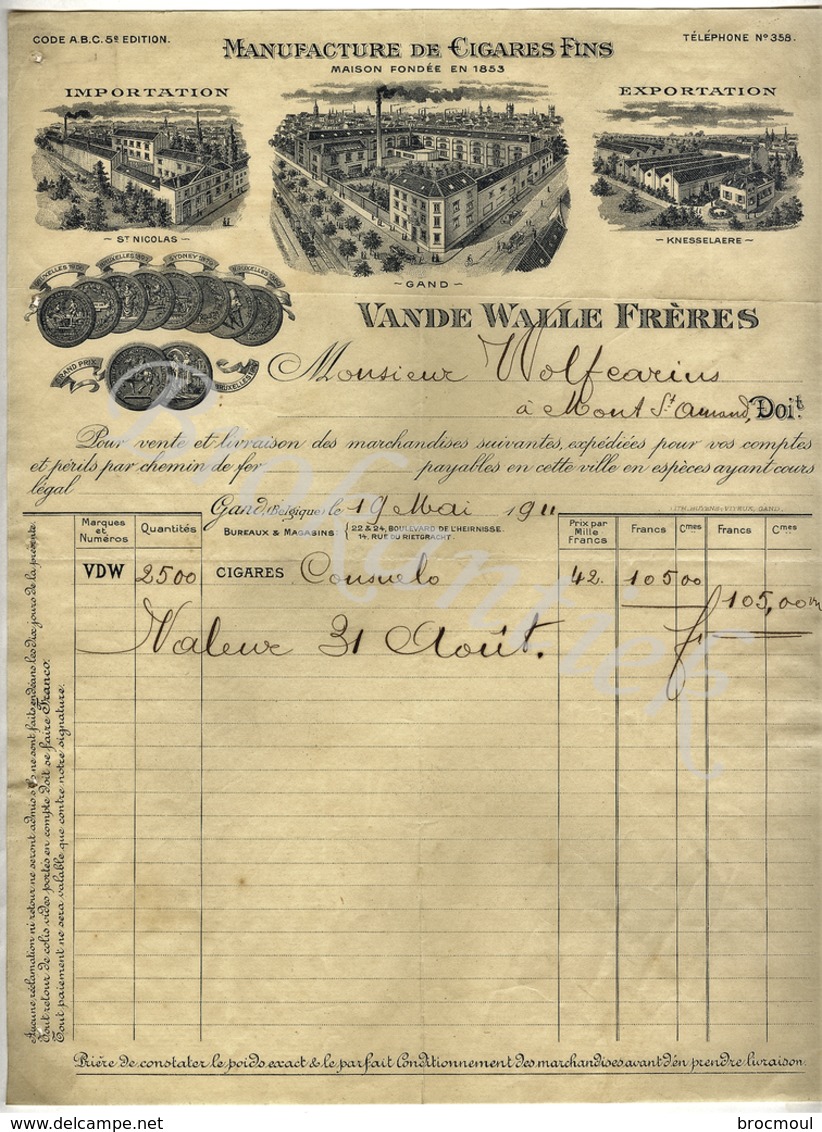 CODE A.B.C. 5e EDITION.
TÉLÉPHONE No 358.
MANUFACTURE DE CIGARES FINS
MAISON FONDÉE EN 1853
IMPORTATION
EXPORTATION
~ ST NICOLAS ~
~ GAND ~
~ KNESSELAERE ~
SYDNEY
GRAND PRIX
VANDE WALLE FRÈRES
Monsieur Wolfcarius
à Mont St. Amand, Doit
Pour vente et livraison des marchandises suivantes, expédiées pour vos comptes
et périls par chemin de fer payables en cette ville en espèces ayant cours
légal
Gand, (Belgique) le 19 Mai 1911
BUREAUX & MAGASINS: 22 & 24, BOULEVARD DE L'HEIRNISSE.
14, RUE DU RIETGRACHT.
Marques et Numéros Quantités Prix par Mille Francs Francs Cmes Francs Cmes
VDW 2500 CIGARES Consuelo 42. 105 00
105,00
Valeur 31 Août.
Aucune réclamation ni retour ne seront admis s'ils ne sont faits endéans les dix jours de la présente.
Tout retour de colis vides portés en compte doit se faire Franco.
Tout paiement ne sera valable que contre notre signature.
Prière de constater le poids exact & le parfait Conditionnement des marchandises avant d'en prendre livraison.
Brokantiek
delcampe.net
brocmoul